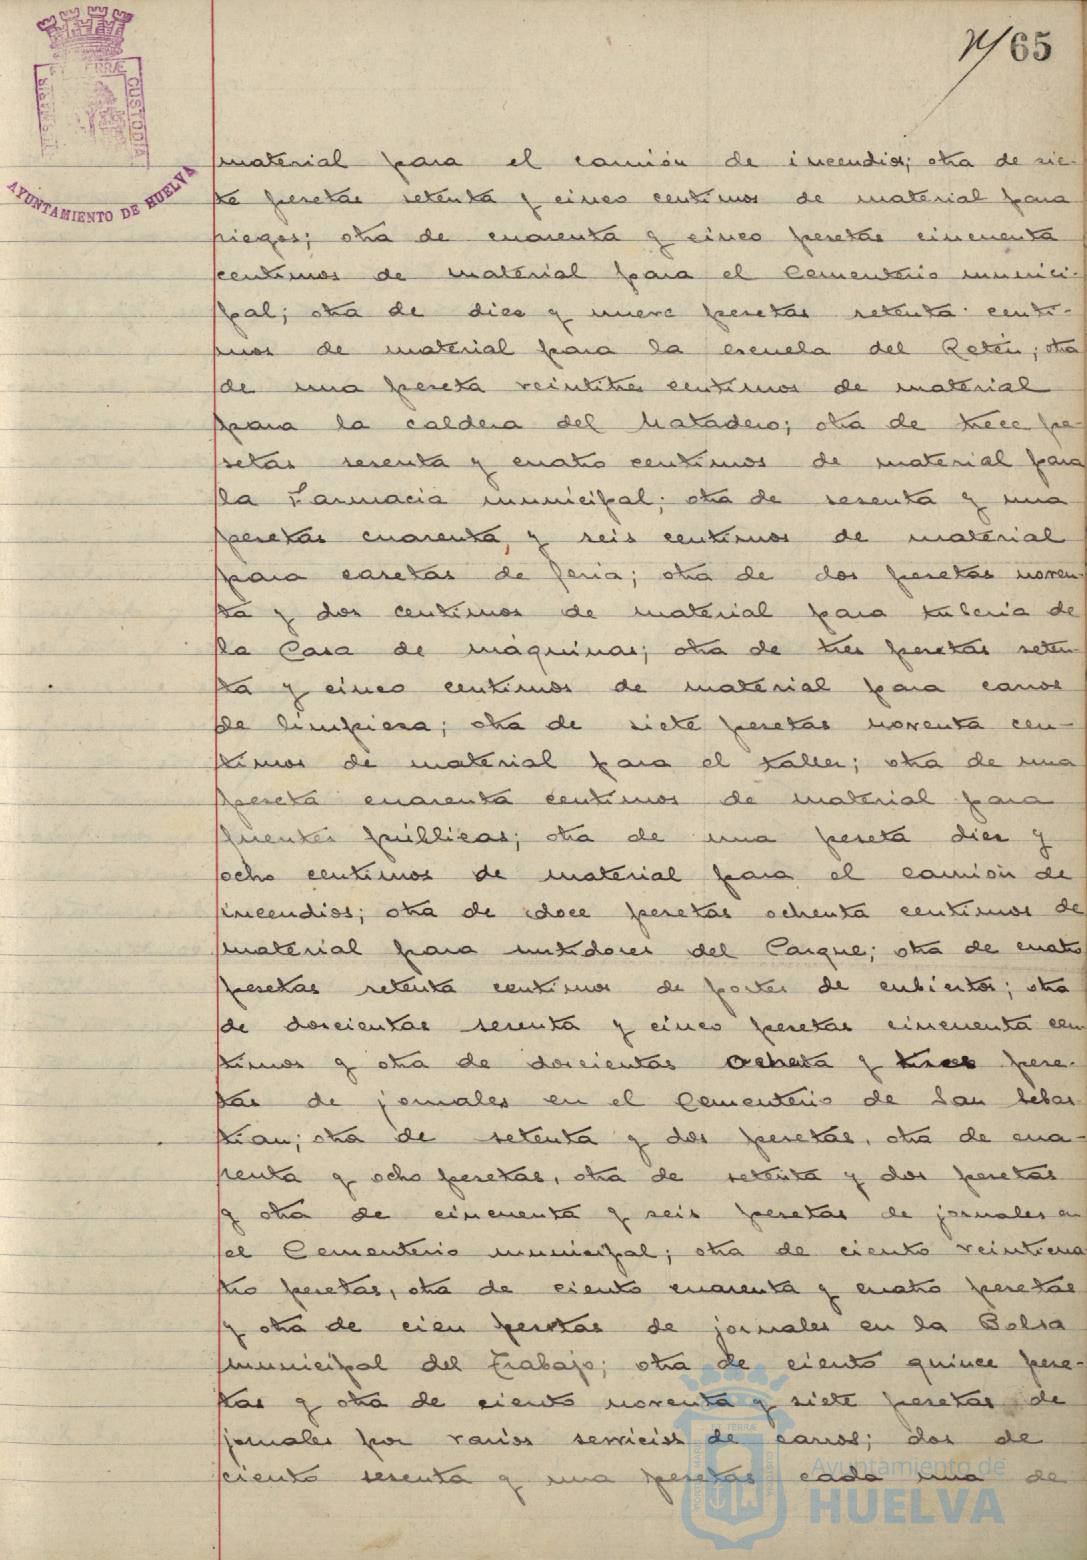 65
TERRÆ
CUSTODIA
AYUNTAMIENTO DE HUELVA
material para el camión de incendios; otra de sie-
te pesetas setenta y cinco centimos de material para
riegos; otra de cuarenta y cinco pesetas cincuenta
centimos de material para el Cementerio munici-
pal; otra de diez y nueve pesetas setenta centi-
mos de material para la escuela del Retén; otra
de una peseta veintitres centimos de material
para la caldera del Matadero; otra de trece pe-
setas sesenta y cuatro centimos de material para
la Farmacia municipal; otra de sesenta y una
pesetas cuarenta y seis centimos de material
para casetas de feria; otra de dos pesetas noven-
ta y dos centimos de material para tuberia de
la Casa de máquinas; otra de tres pesetas seten-
ta y cinco centimos de material para carros
de limpieza; otra de siete pesetas noventa cen-
timos de material para el taller; otra de una
peseta cuarenta centimos de material para
fuentes públicas; otra de una peseta diez y
ocho centimos de material para el camión de
incendios; otra de doce pesetas ochenta centimos de
material para surtidores del Parque; otra de cuatro
pesetas setenta centimos de portes de cubiertos; otra
de doscientas sesenta y cinco pesetas cincuenta cen
timos y otra de doscientas ocheta y tres pese-
tas de jornales en el Cementerio de San Sebas
tian; otra de setenta y dos pesetas, otra de cua-
renta y ocho pesetas, otra de setenta y dos pesetas
y otra de cincuenta y seis pesetas de jornales en
el Cementerio municipal; otra de ciento veinticua
tro pesetas, otra de ciento cuarenta y cuatro pesetas
y otra de cien pesetas de jornales en la Bolsa
municipal del Trabajo; otra de ciento quince pese-
tas y otra de ciento noventa y siete pesetas de
jornales por varios servicios de carros; dos de
ciento sesenta y una pesetas cada una de
Ayuntamiento de
HUELVA